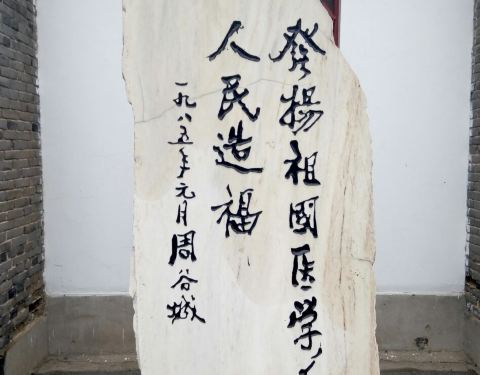 發揚祖國医学
人民造福
一九八五年元月周谷城